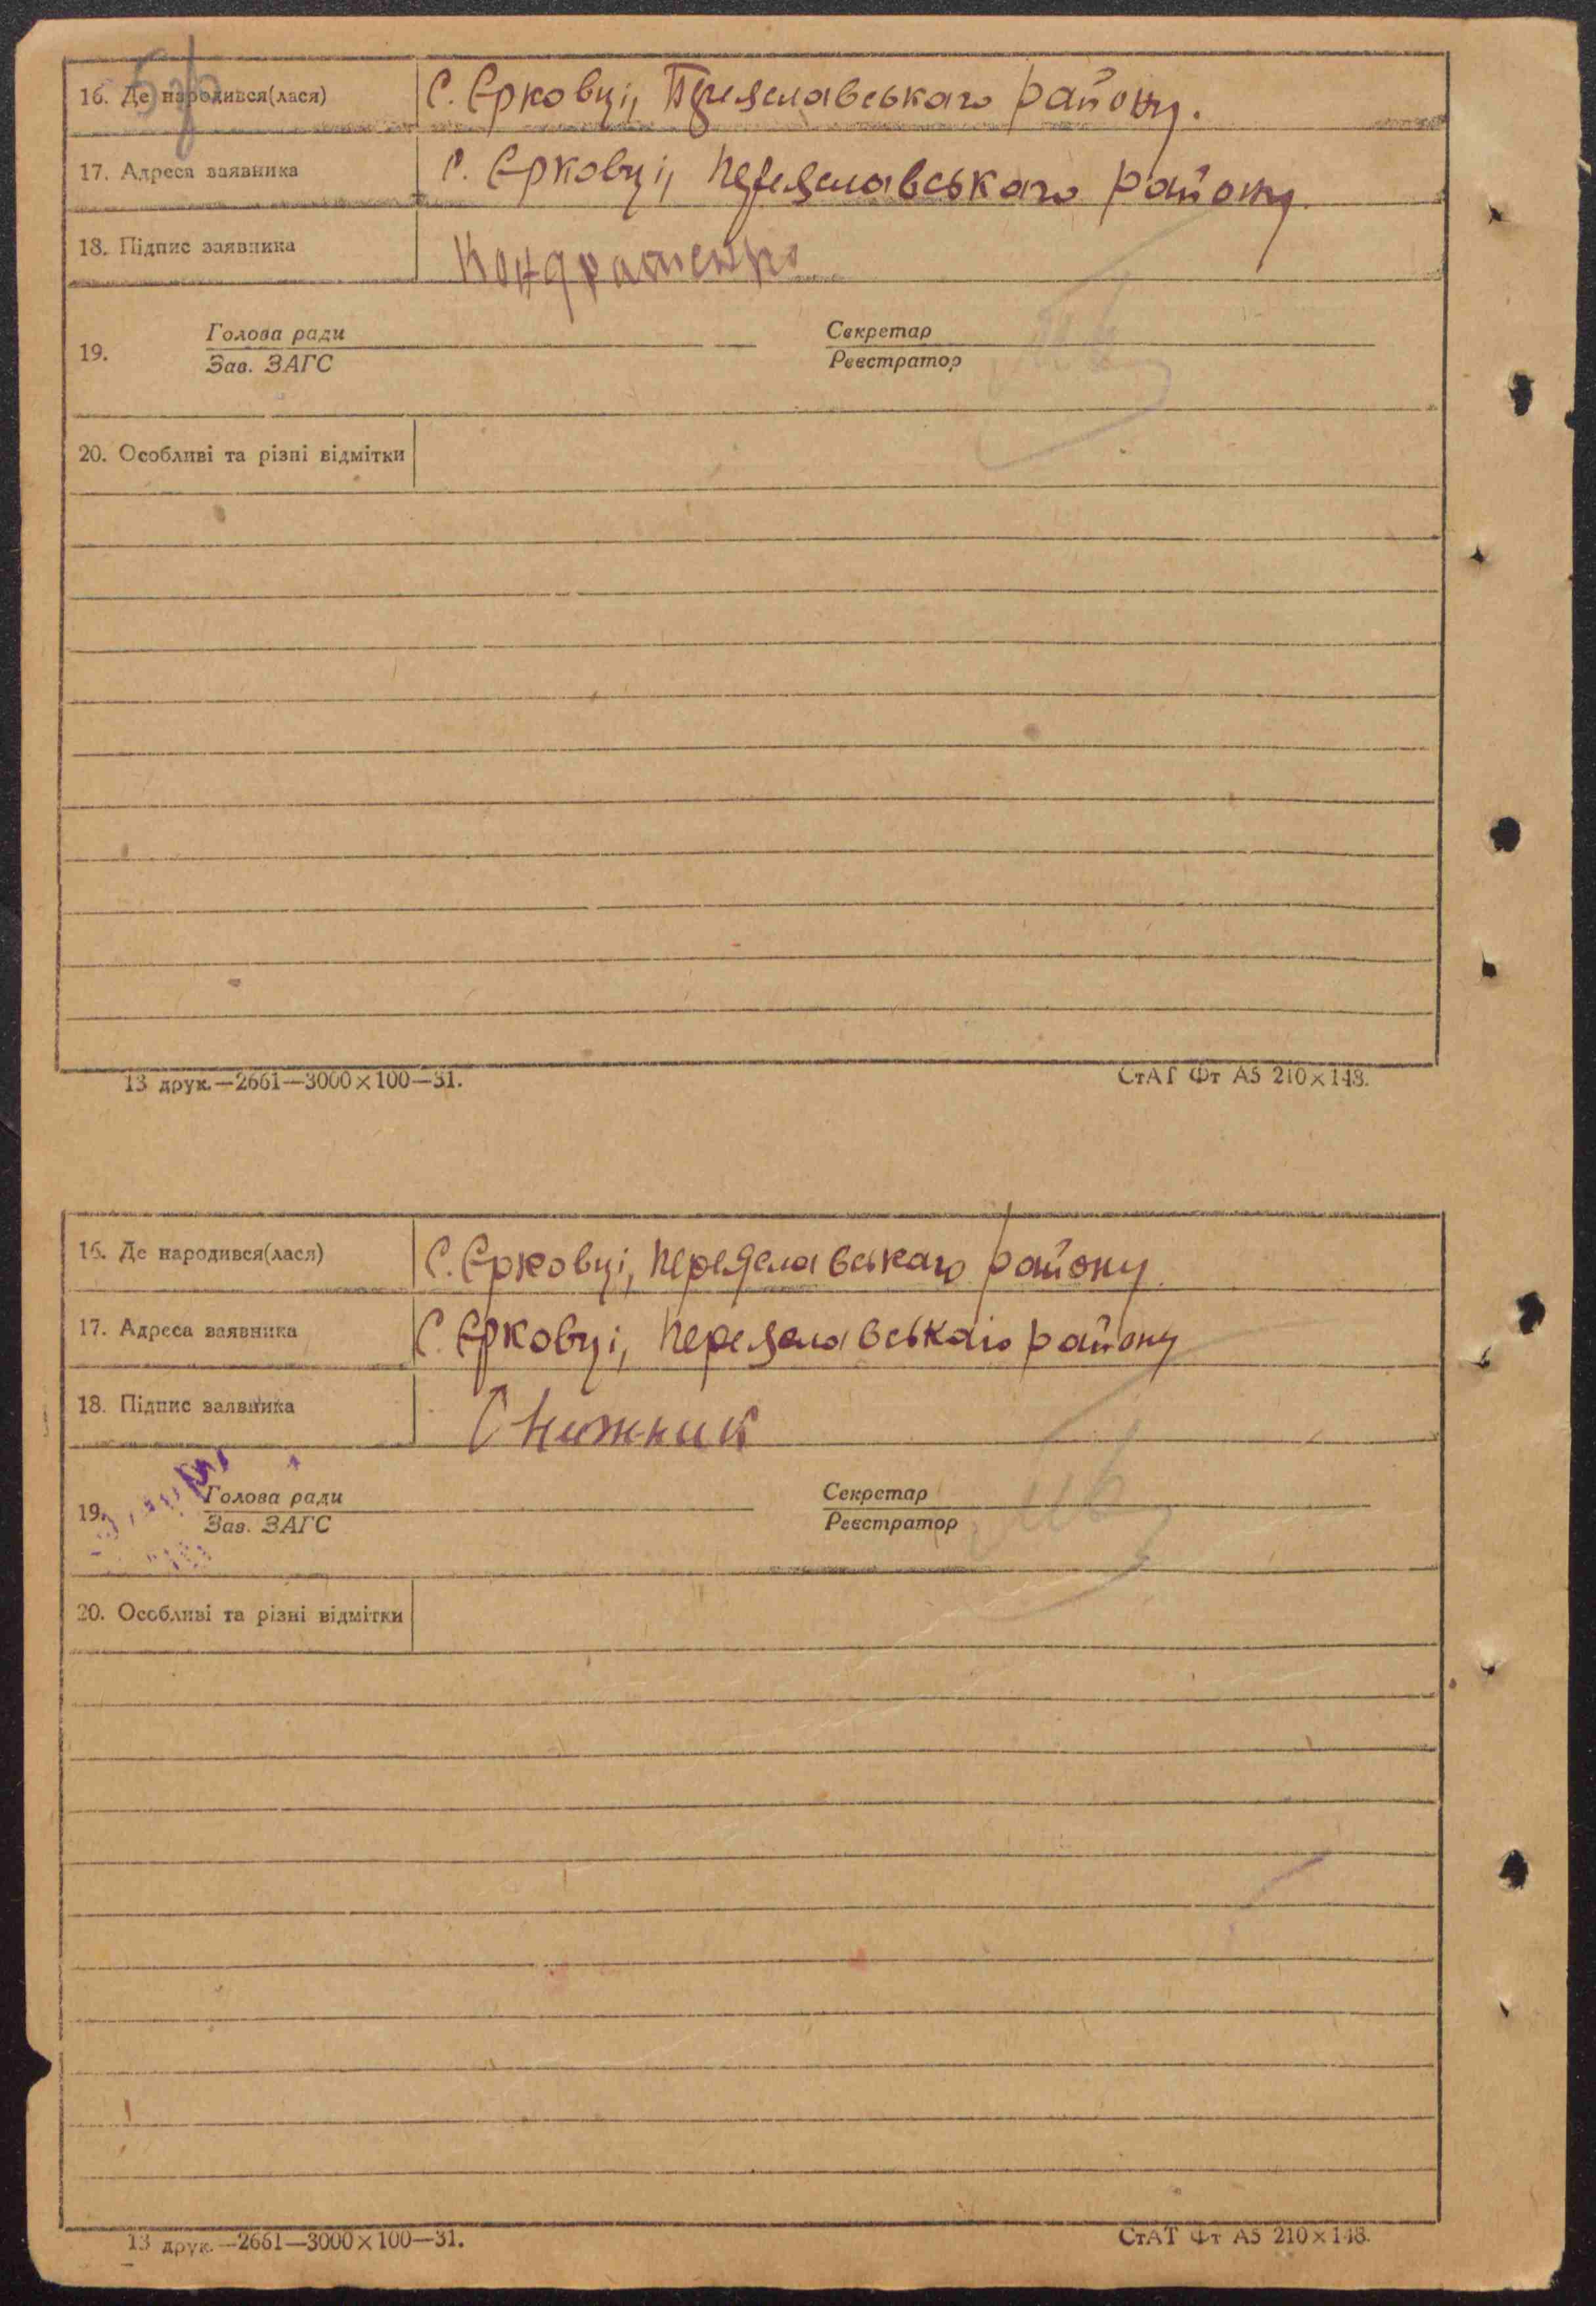 16. Де народився(лася) С. Єрковці, Переяславського району.
17. Адреса заявника С. Єрковці, Переяславського району
18. Підпис заявника Кондратенко
19. Голова ради Секретар
Зав. ЗАГС Реєстратор
20. Особливі та різні відмітки
13 друк.—2661—3000×100—31. СтАТ Фт А5 210×148.
16. Де народився(лася) С. Єрковці, Переяславського району
17. Адреса заявника С. Єрковці, Переяславського району
18. Підпис заявника Нижник
19. Голова ради Секретар
Зав. ЗАГС Реєстратор
20. Особливі та різні відмітки
13 друк.—2661—3000×100—31. СтАТ Фт А5 210×148.